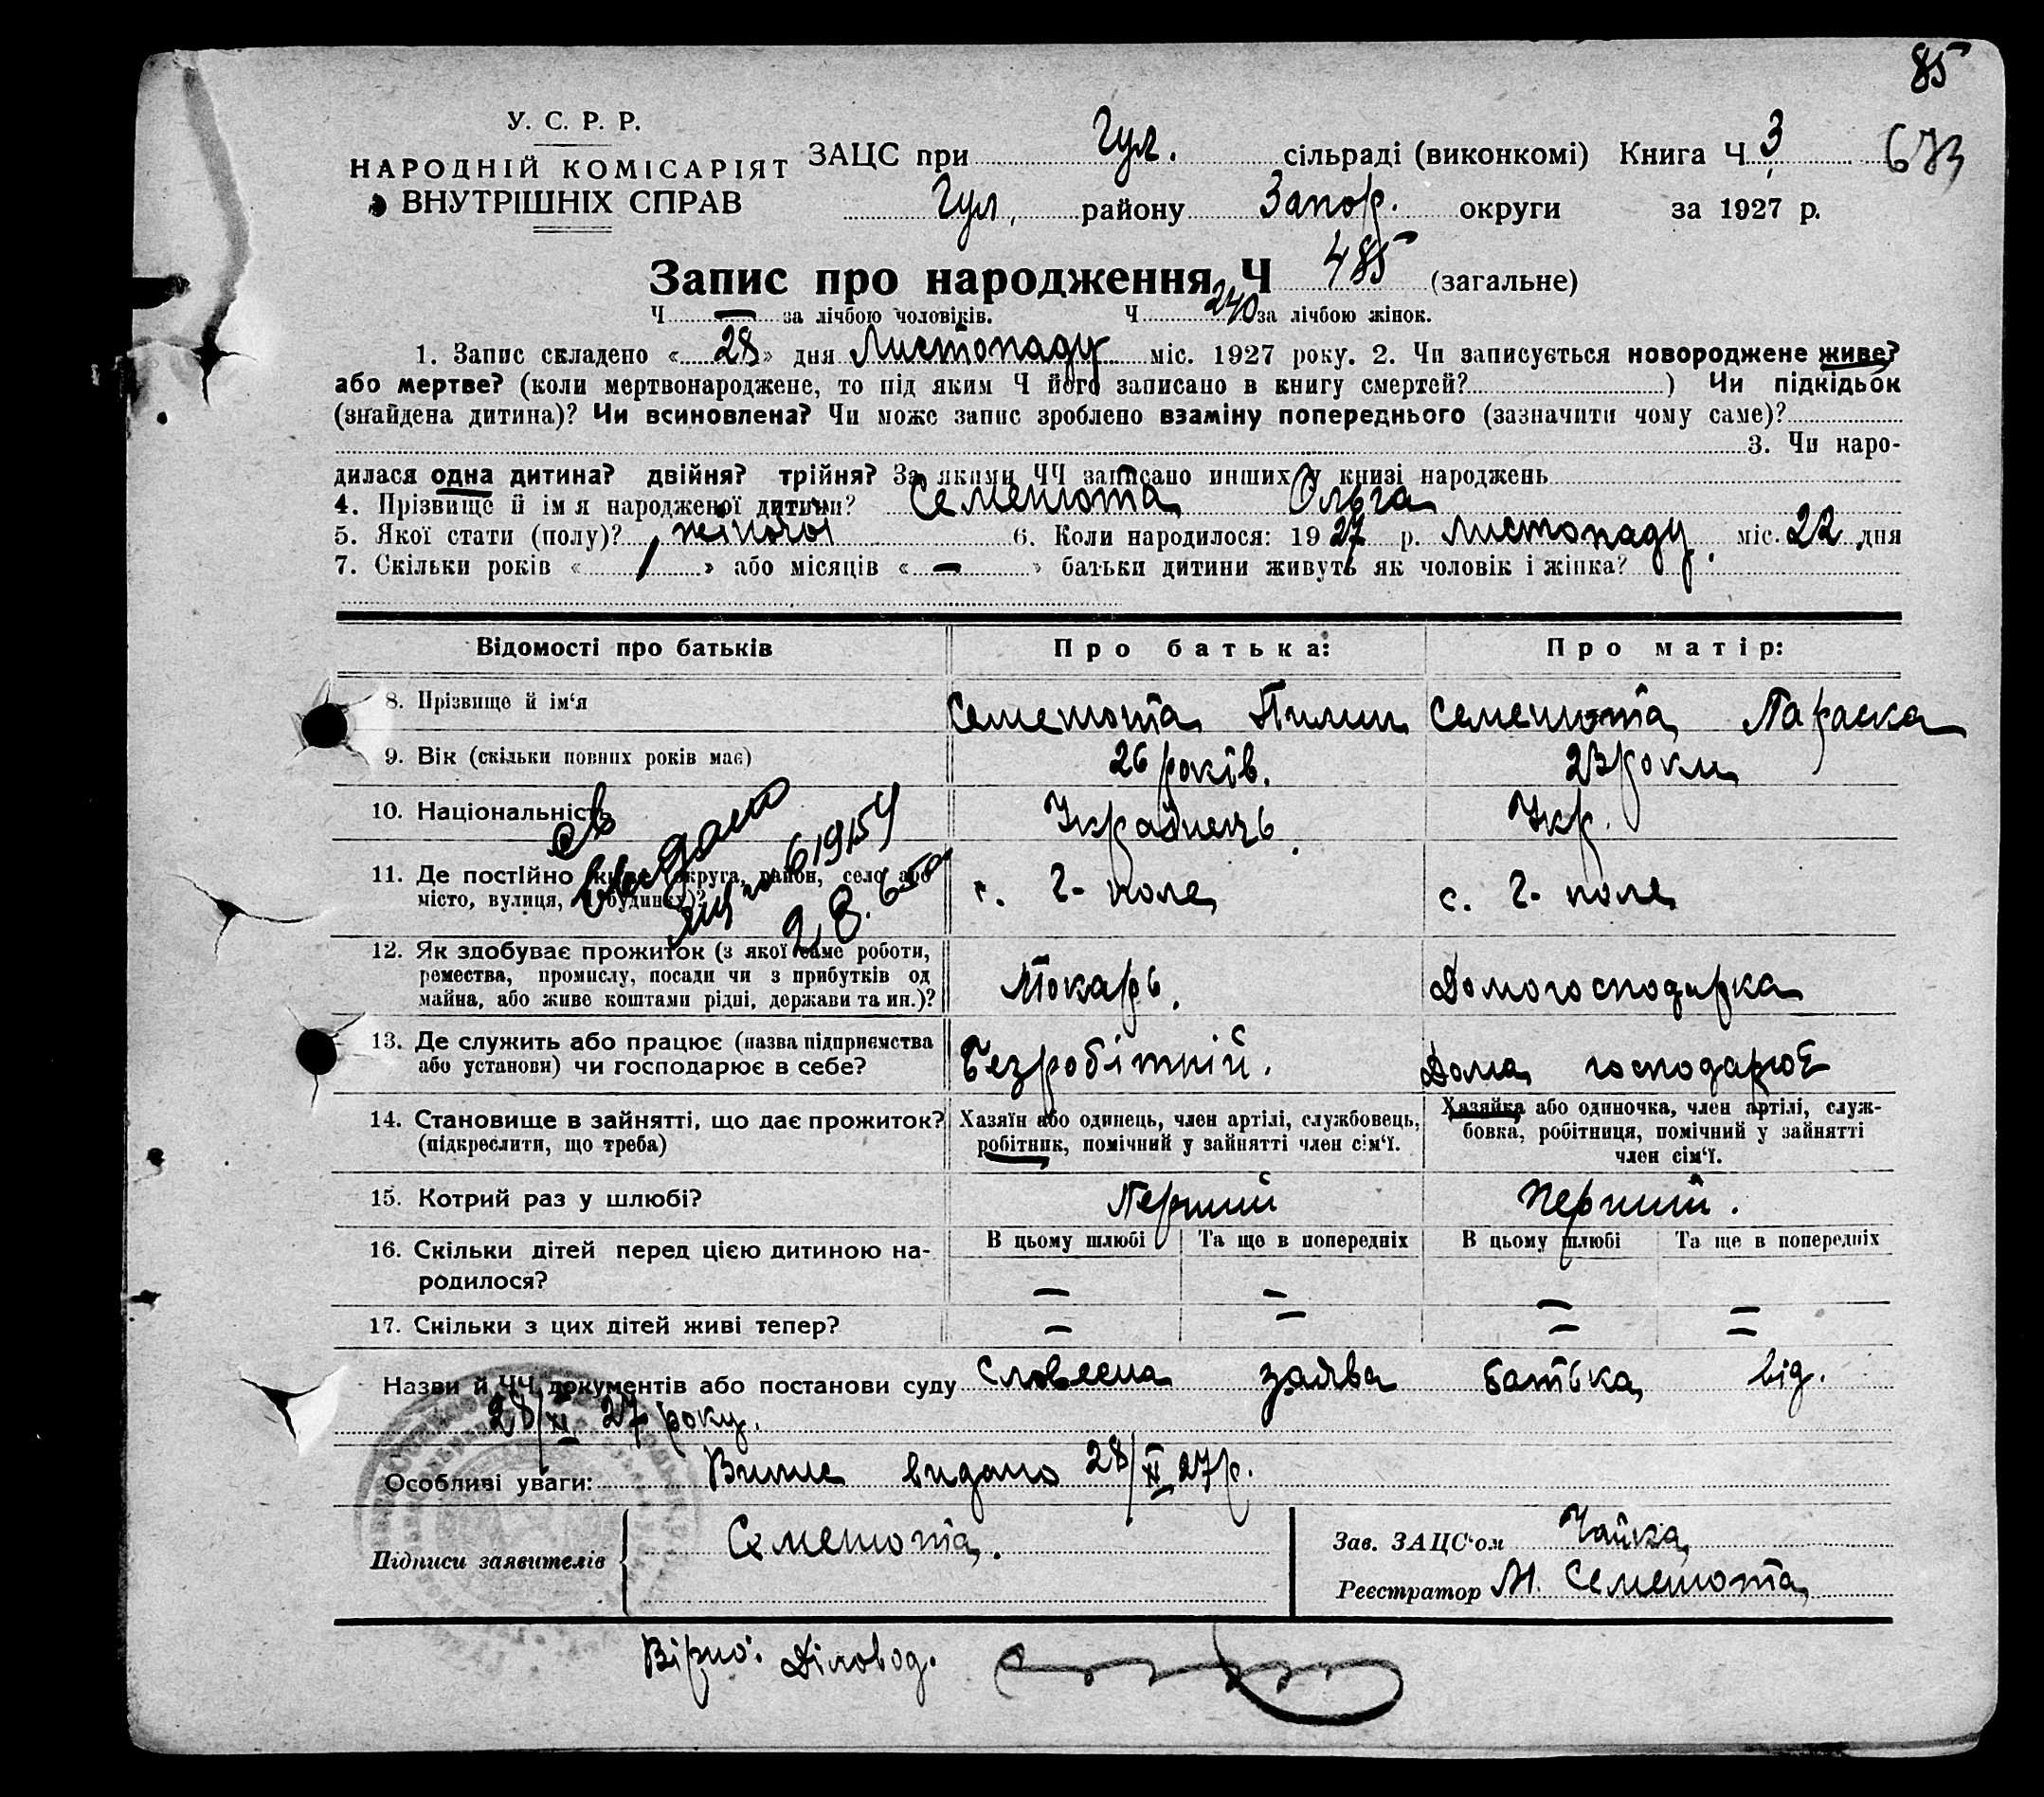 85
У. С. Р. Р.
НАРОДНІЙ КОМІСАРІЯТ
ВНУТРІШНІХ СПРАВ
ЗАЦС при Гул. сільраді (виконкомі) Книга Ч. 3 673
Гул. району Запор. округи за 1927 р.
Запис про народження Ч 485 (загальне)
Ч — за лічбою чоловіків. Ч 240 за лічбою жінок.
1. Запис складено « 28 » дня Листопаду міс. 1927 року. 2. Чи записується новороджене живе?
або мертве? (коли мертвонароджене, то під яким Ч його записано в книгу смертей? ) Чи підкідьок
(знайдена дитина)? Чи всиновлена? Чи може запис зроблено взаміну попереднього (зазначити чому саме)?
3. Чи наро-
дилася одна дитина? двійня? трійня? За якими ЧЧ записано инших у книзі народжень
4. Прізвище й ім я народженої дитини? Семенюта Ольга
5. Якої стати (полу)? жіночої 6. Коли народилося: 1927 р. Листопаду міс. 22 дня
7. Скільки років « 1 » або місяців « — » батьки дитини живуть як чоловік і жінка?
Відомості про батьків Про батька: Про матір:
8. Прізвище й ім'я Семенюта Пилип Семенюта Параска
9. Вік (скільки повних років має) 26 років. 23 роки
10. Національність Українець Укр.
11. Де постійно живе (округа, район, село або с. Г-поле с. Г-поле
місто, вулиця, Ч будинку)?
св видано
619154
28.6.50
12. Як здобуває прожиток (з якої саме роботи,
ремества, промислу, посади чи з прибутків од Токарь. Домогосподарка
майна, або живе коштами рідні, держави та ин.)?
13. Де служить або працює (назва підприємства
або установи) чи господарює в себе? Безробітній. Дома господарює
14. Становище в зайнятті, що дає прожиток? Хазяїн або одинець, член артілі, службовець, Хазяйка або одиночка, член артілі, служ-
(підкреслити, що треба) робітник, помічний у зайнятті член сім'ї. бовка, робітниця, помічний у зайнятті
член сім'ї.
15. Котрий раз у шлюбі? Перший Перший.
16. Скільки дітей перед цією дитиною на- В цьому шлюбі Та ще в попередніх В цьому шлюбі Та ще в попередніх
родилося? — — — —
17. Скільки з цих дітей живі тепер? — — — —
Назви й ЧЧ документів або постанови суду Словесна заява батька від.
28/XI 27 року.
Особливі уваги: Випис видано 28/XI 27 р.
Підписи заявителів Семенюта.
Зав. ЗАЦС'ом Чайка
Реєстратор М. Семенюта
Вірно: Діловод.